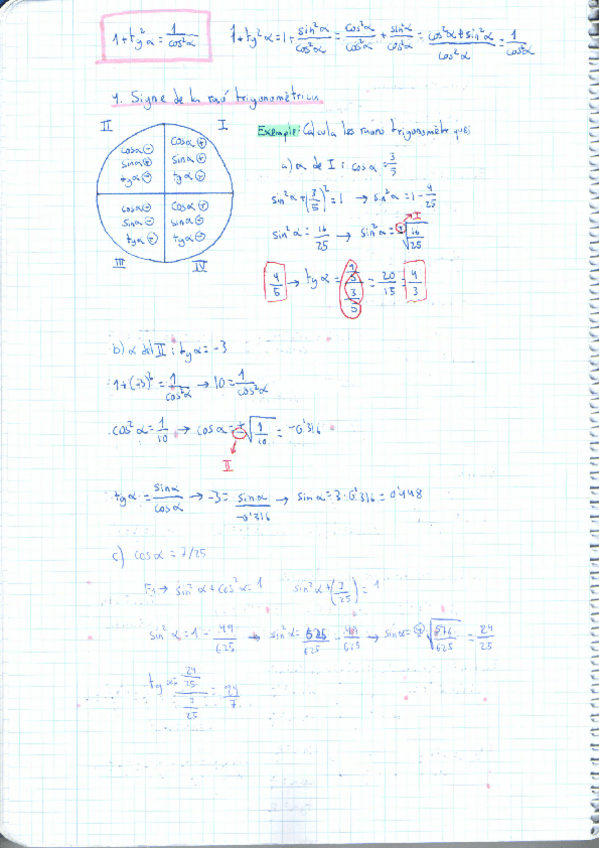 1+tg²α = 1/cos²α   1+tg²α = 1+ sin²α/cos²α = cos²α/cos²α + sin²α/cos²α = cos²α+sin²α/cos²α = 1/cos²α
4. Signe de la raó trigonomètrica
II I
cosα ⊖ cosα ⊕
sinα ⊕ sinα ⊕
tgα ⊖ tgα ⊕
cosα ⊖ cosα ⊕
sinα ⊖ sinα ⊖
tgα ⊕ tgα ⊖
III IV
Exemple: Calcula les raons trigonomètriques
a) α de I : cosα = 3/5
sin²α + (3/5)² = 1 → sin²α = 1 - 4/25
I
sin²α = 16/25 → sin²α = ⊕√16/25
4/5 → tgα = 4/5 / 3/5 = 20/15 = 4/3
b) α del II : tgα = -3
1+(-3)² = 1/cos²α → 10 = 1/cos²α
cos²α = 1/10 → cosα = ±√1/10 = -0'316
II
tgα = sinα/cosα → -3 = sinα/-0'316 → sinα = 3·0'316 = 0'948
c) cosα = 7/25
→ sin²α + cos²α = 1   sin²α + (7/25) = 1
sin²α = 1 - 49/625 → sin²α = 625/625 - 49/625 → sinα = ⊕√576/625 = 24/25
tgα = 24/25 / 7/25 = 24/7